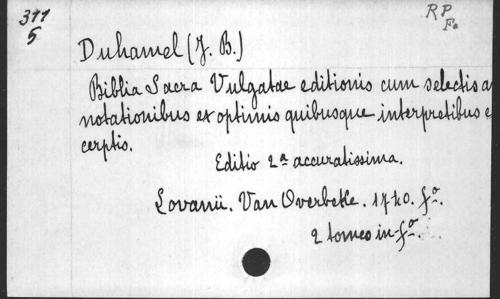 311
5
R P
F.
Duhamel (J. B.)
Biblia Sacra Vulgatae editionis cum selectis a
notationibus ex optimis quibusque interpretibus e
cerptis.
Editio 2a accuratissima.
Lovanii. Van Overbeke. 1740. fo.
2 tomes in-fo.